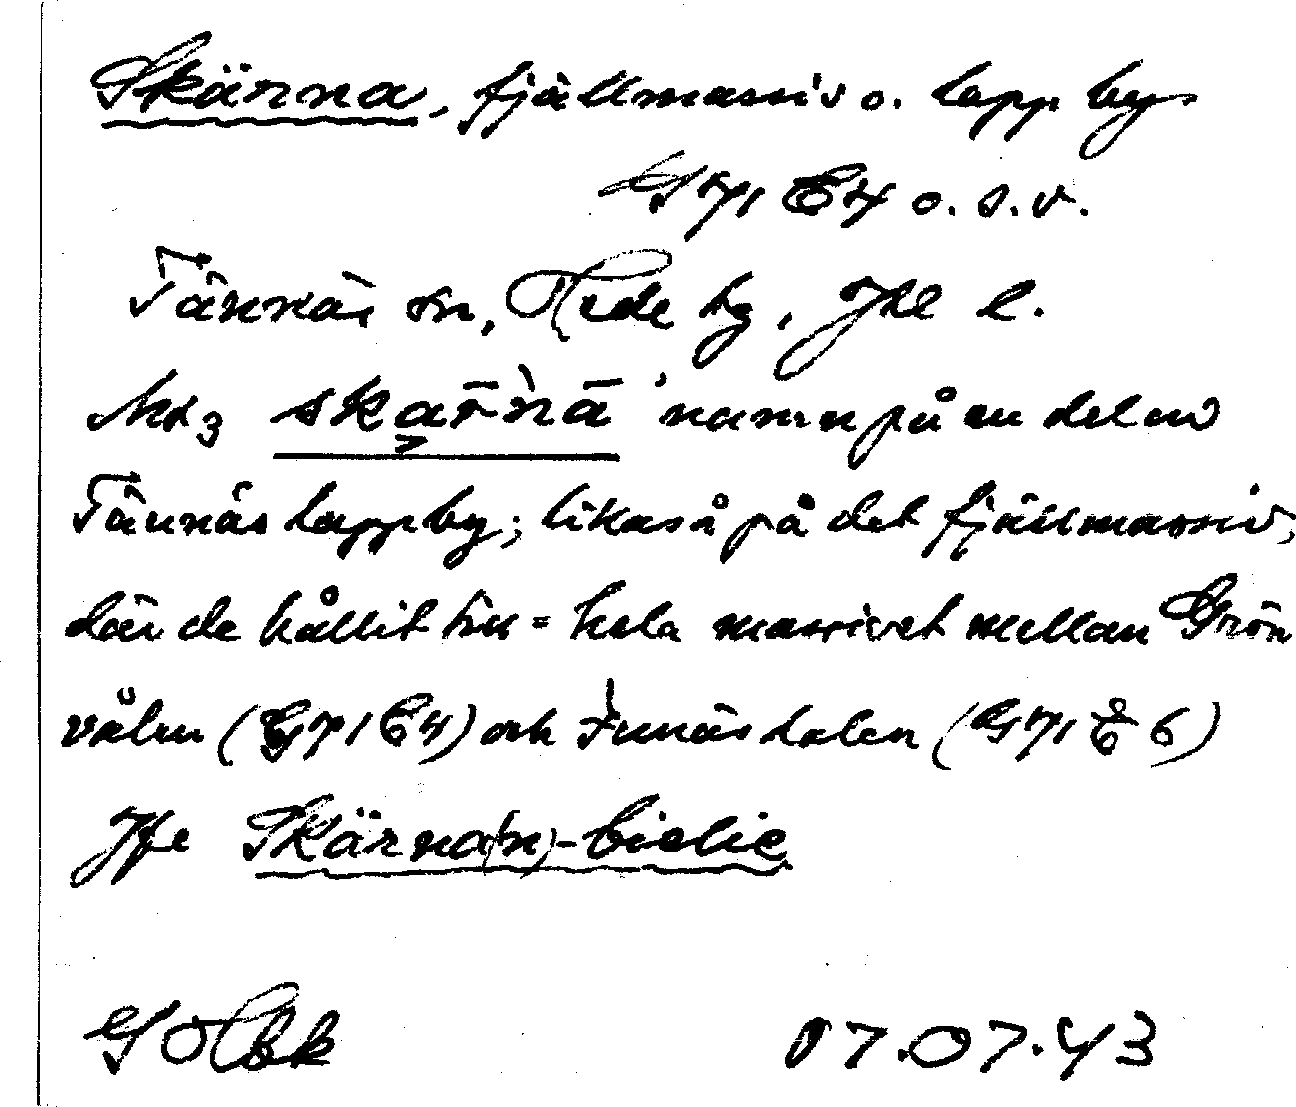 Skärna, fjällmassiv o. lappby
G 71 E4 o. s. v.
Tännäs sn, Hede tg, Jhl l.
skar̄nā 'namn på en del av
Tännäs lappby; likaså på det fjällmassiv,
där de hållit till = hela massivet mellan Grön
vålen (G 71 E4) och Funäsdalen (G 71 E 6)
Jfr Skärna(n)-bielie
07.07.43